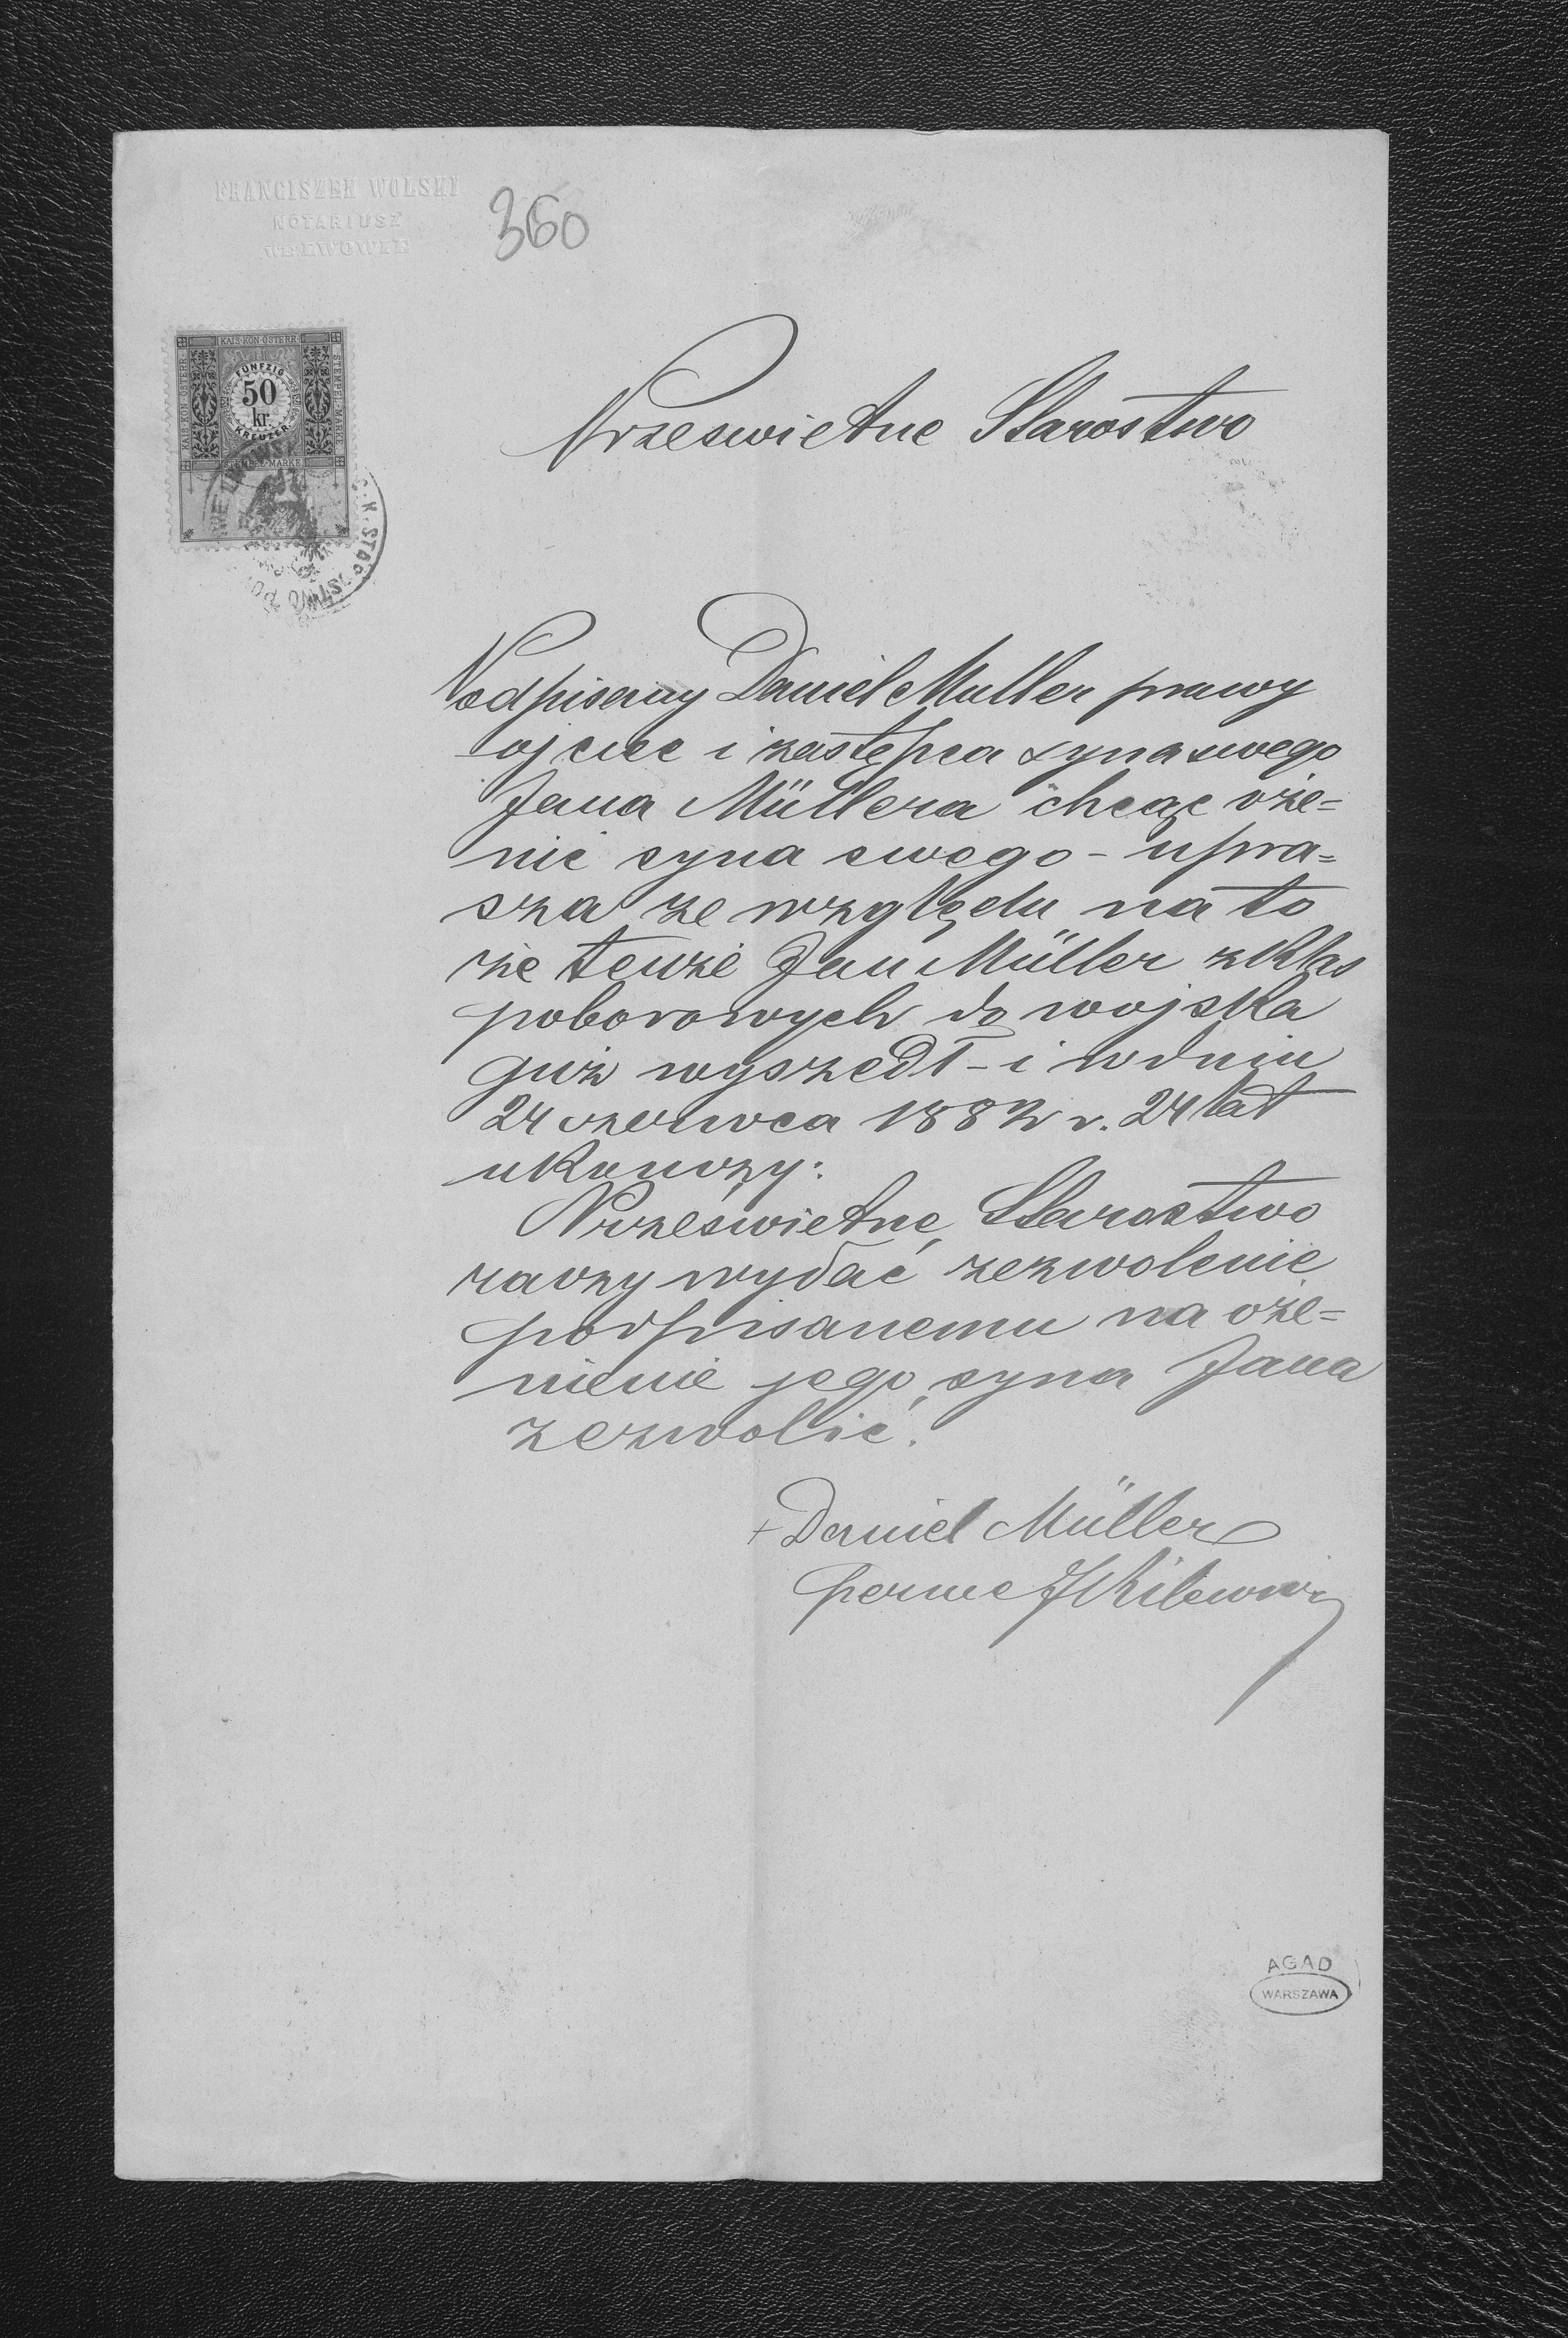 FRANCISZEK WOLSKI
NOTARIUSZ
WE LWOWIE
360
KAIS. KÖN. ÖSTERR.
KAIS. KÖN. ÖSTERR.
STEMPEL-MARKE
FÜNFZIG
50
kr.
KREUZER
STEMPEL-MARKE
C. K. STAROSTWO
WE LWOWIE
Przeswietne Starostwo
Podpisany Daniel Muller prawy
ojciec i zastępca syna swego
Jana Müllera chcąc oże=
nić syna swego - upra=
sza ze względu na to
że tenże Jan Müller z klas
poborowych do wojska
już wyszedł - i w dniu
24 czerwca 1882 r. 24 lat
ukończy:
Prześwietne Starostwo
raczy wydać zezwolenie
podpisanemu na oże=
nienie jego syna Jana
zezwolić.
+ Daniel Müller
AGAD
WARSZAWA